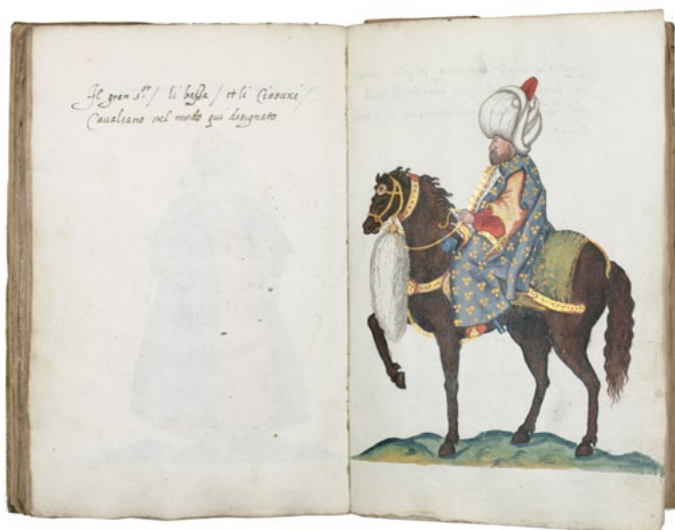 Il gran s.or / li bassa / et li Ciaouxi /
Caualcano nel modo qui disignato